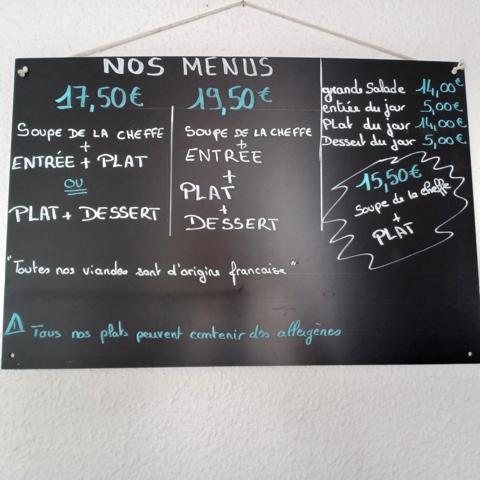 NOS MENUS
17,50€
SOUPE DE LA CHEFFE
+
ENTRÉE + PLAT
OU
PLAT + DESSERT
19,50€
SOUPE DE LA CHEFFE
+
ENTRÉE
+
PLAT
+
DESSERT
grande Salade 14,00€
entrée du jour 5,00€
Plat du jour 14,00€
Dessert du jour 5,00€
15,50€
soupe de la cheffe
+
PLAT
"Toutes nos viandes sont d'origine francaise"
⚠ Tous nos plats peuvent contenir des allergènes